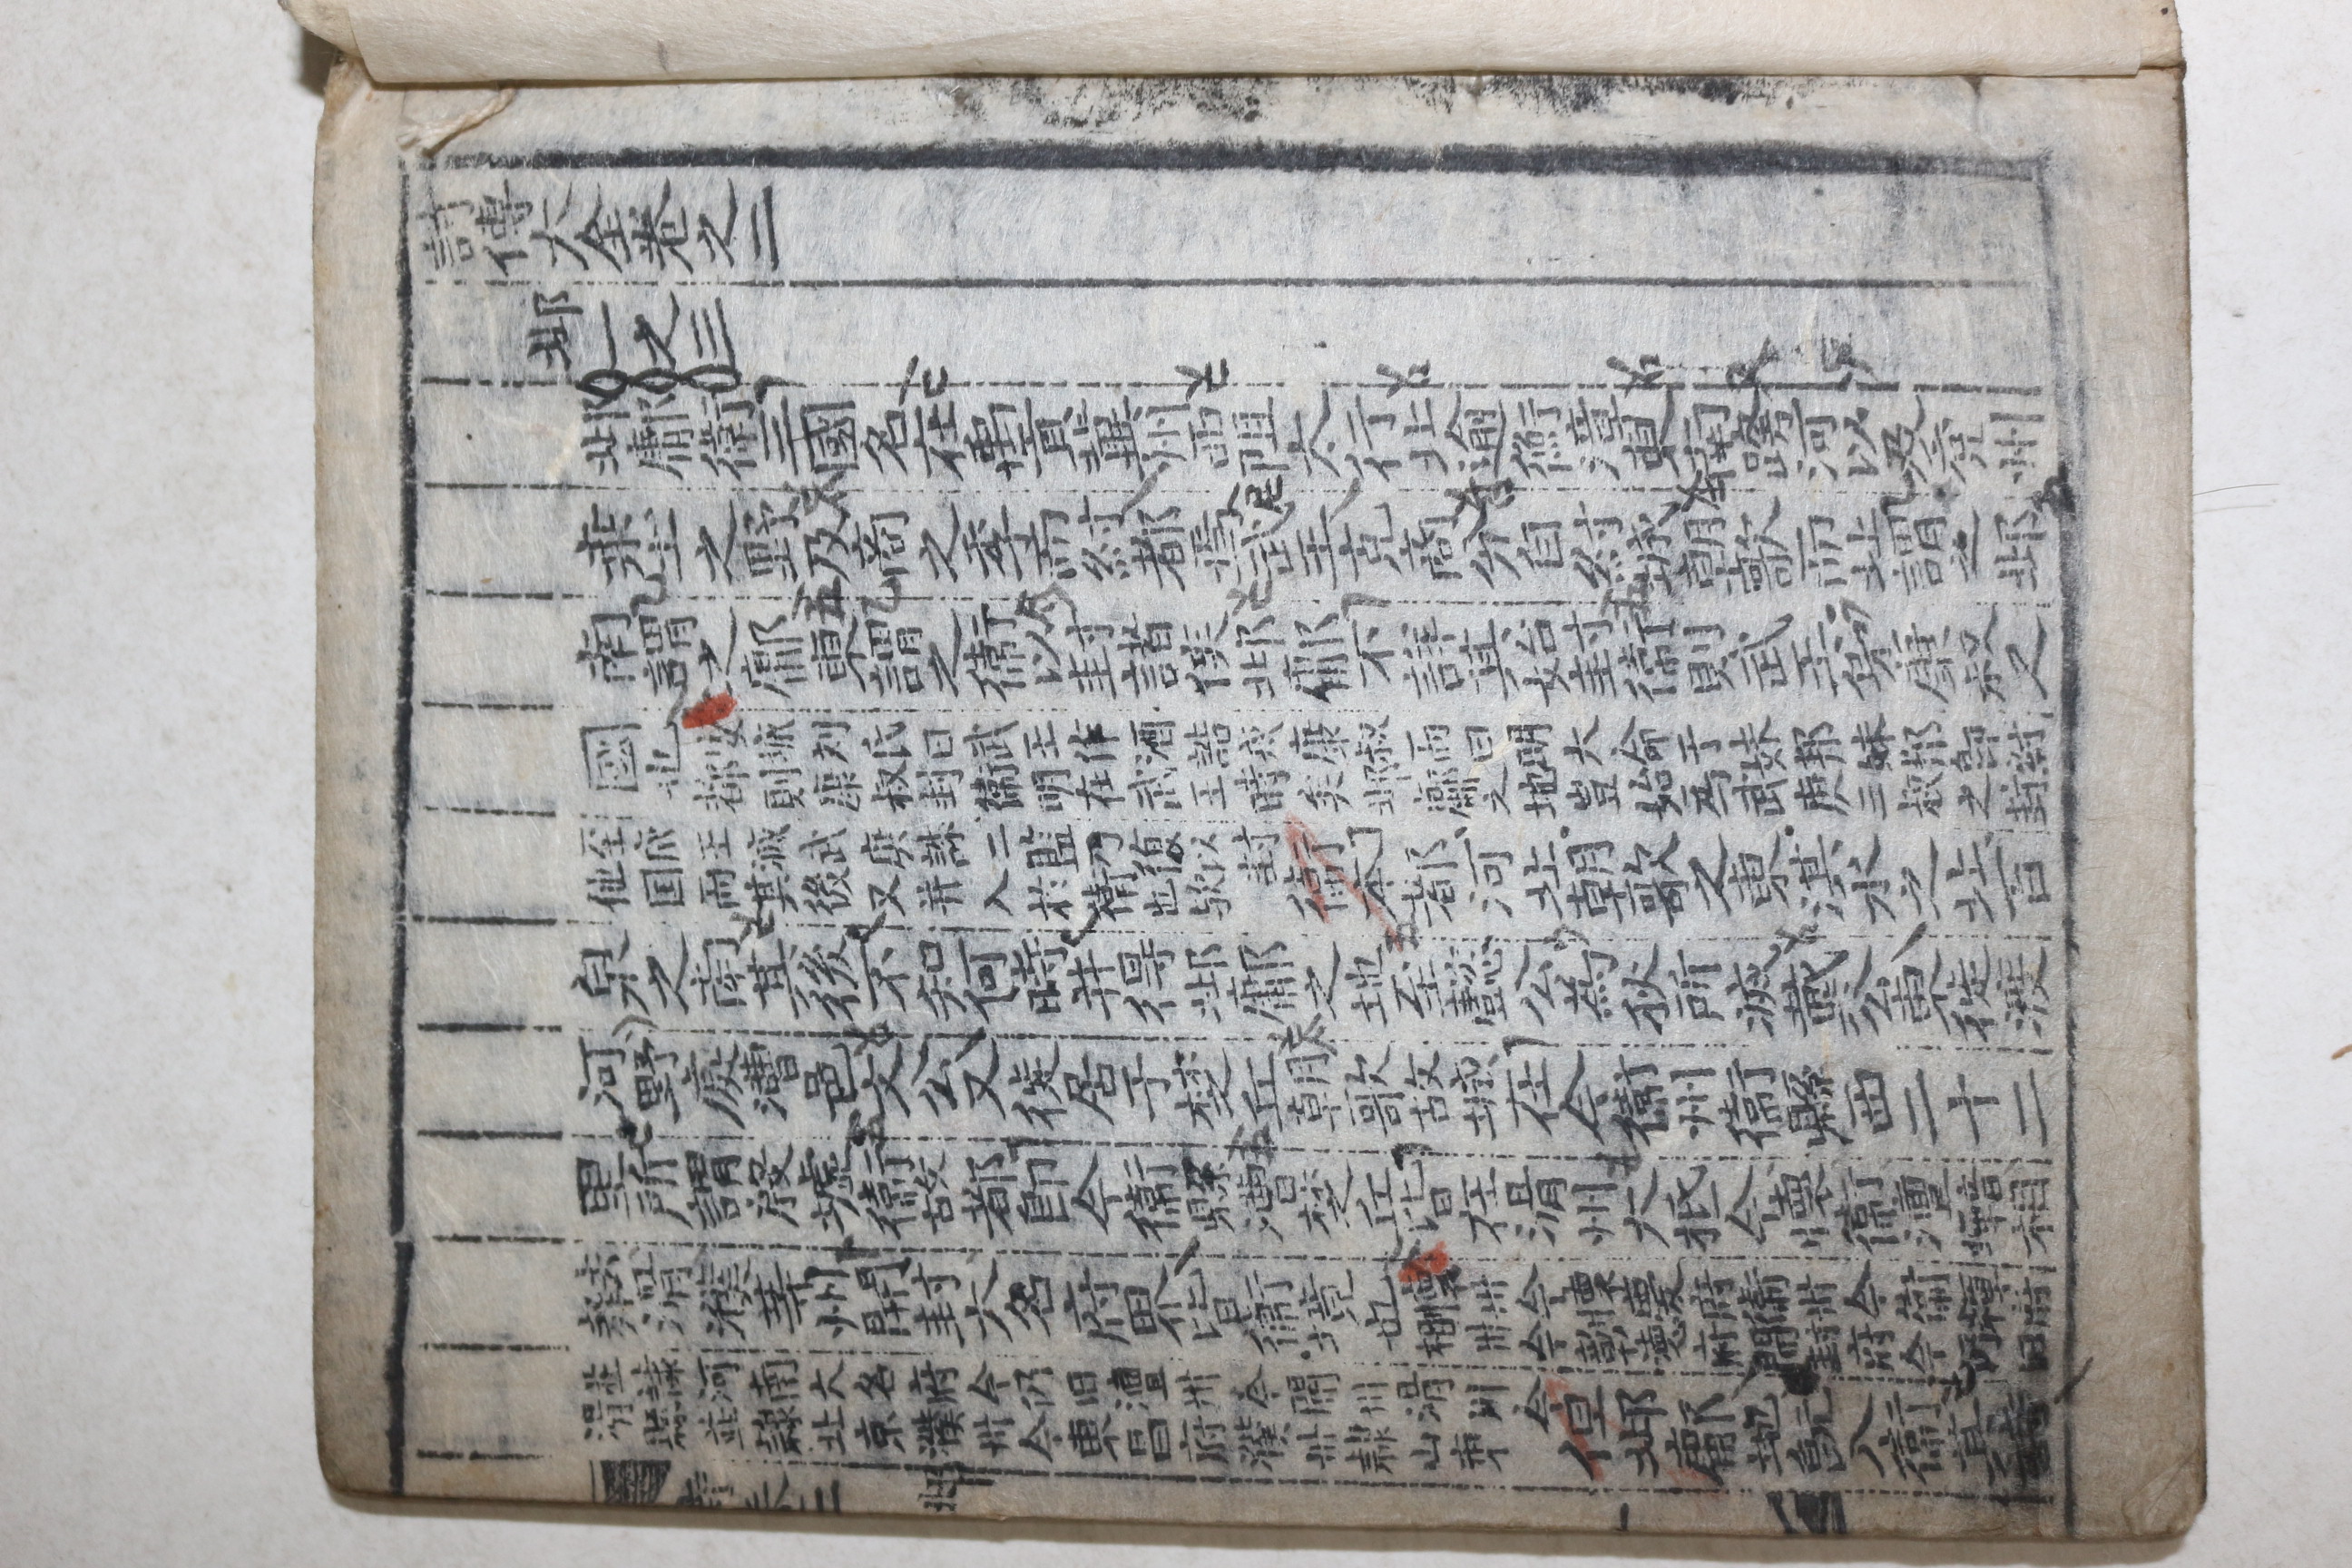 詩傳大全卷之二
邶一之三
邶鄘衛三國名在禹貢冀州西阻太行北逾衡漳東南跨河以及兗州
桒土之野及商之季而紂都焉武王克商分自紂城朝歌而北謂之邶
南謂之鄘東謂之衛以封諸侯邶鄘不詳其始封衛則武王弟康叔之
國也
安城刘氏曰武王作酒誥戒康叔而曰明大命于妹邦妹邦即紂
都則康叔封衛明在武王時矣邶鄘之地豈始爲武庚三叔之封
至成王滅武庚誅三監乃復以封
他国而其後又并入於衛也欤
衛本都河北朝歌之東淇水之北百
泉之南其後不知何時并得邶鄘之地至懿公爲狄所滅戴公東徙渡
河野處漕邑文公又徙居于楚丘朝歌故城在今衛州衛縣西二十二
里所謂殷墟衛故都即今衛縣漕楚丘皆在滑州大抵今懷衛澶相
滑濮等州開封大名府界皆衛境也
懷州今懷慶府衛州今衛輝府
相州今彰德府開封府今仍旧
並隷河南大名府今仍旧澶州今開州滑州今
滑縣並隷北京濮州今東昌府濮州隷山東
但邶鄘地既入衛其詩